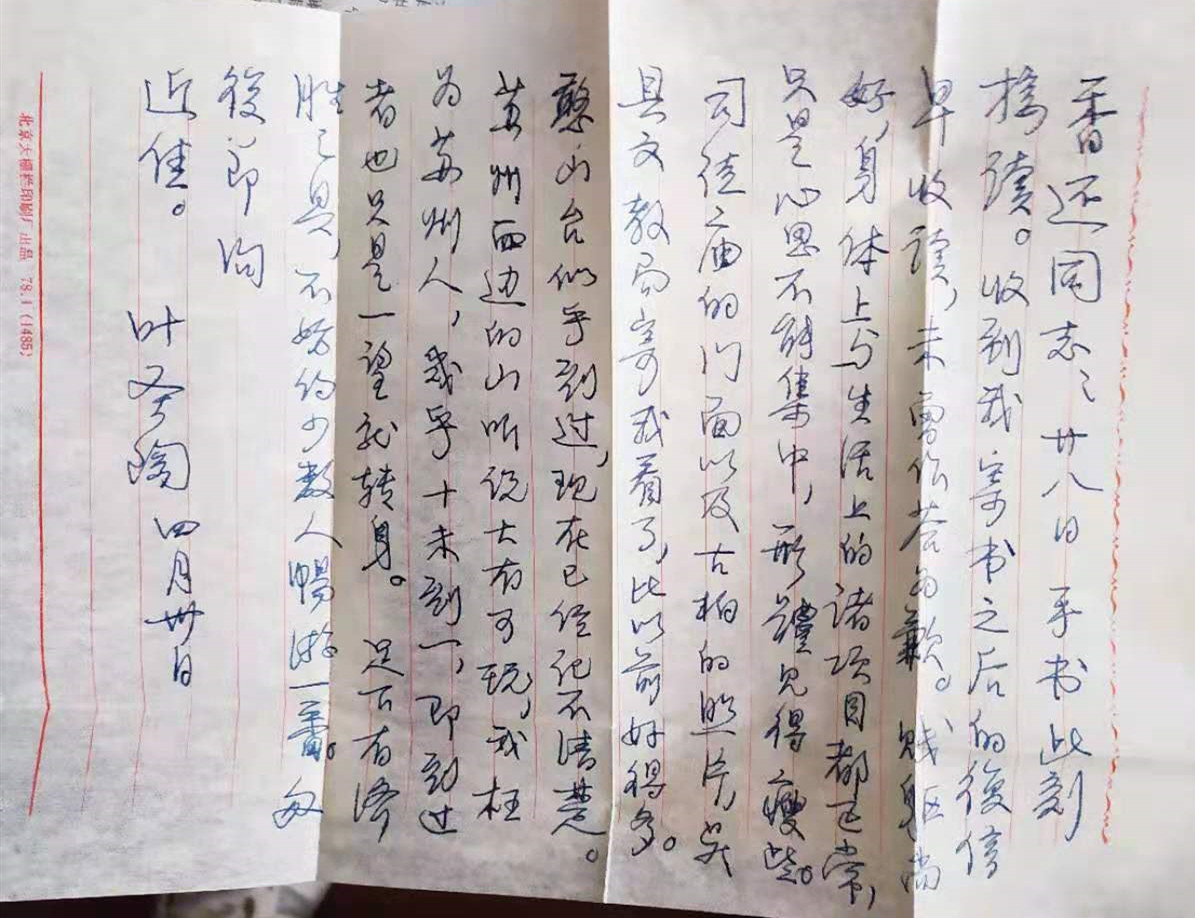 香还同志：廿八日手书此刻
接读。收到我寄书之后的復信
早收读，未曾作荅为歉。贱躯尚
好，身体上与生活上的诸项目都正常，
只是心思不能集中，形體见得瘦些。
司徒庙的门面以及古柏的照片，吴
县文教局寄我看了，比以前好得多。
憨山台似乎到过，现在已经记不清楚。
苏州西边的山听说大有可玩，我枉
为苏州人，几乎十未到一，即到过
者也只是一望就转身。足下有济
胜之具，不妨约少数人暢游一番。匆
復即询
近佳。
叶圣陶 四月卅日
北京大栅栏印刷厂出品 78.1 (1485)